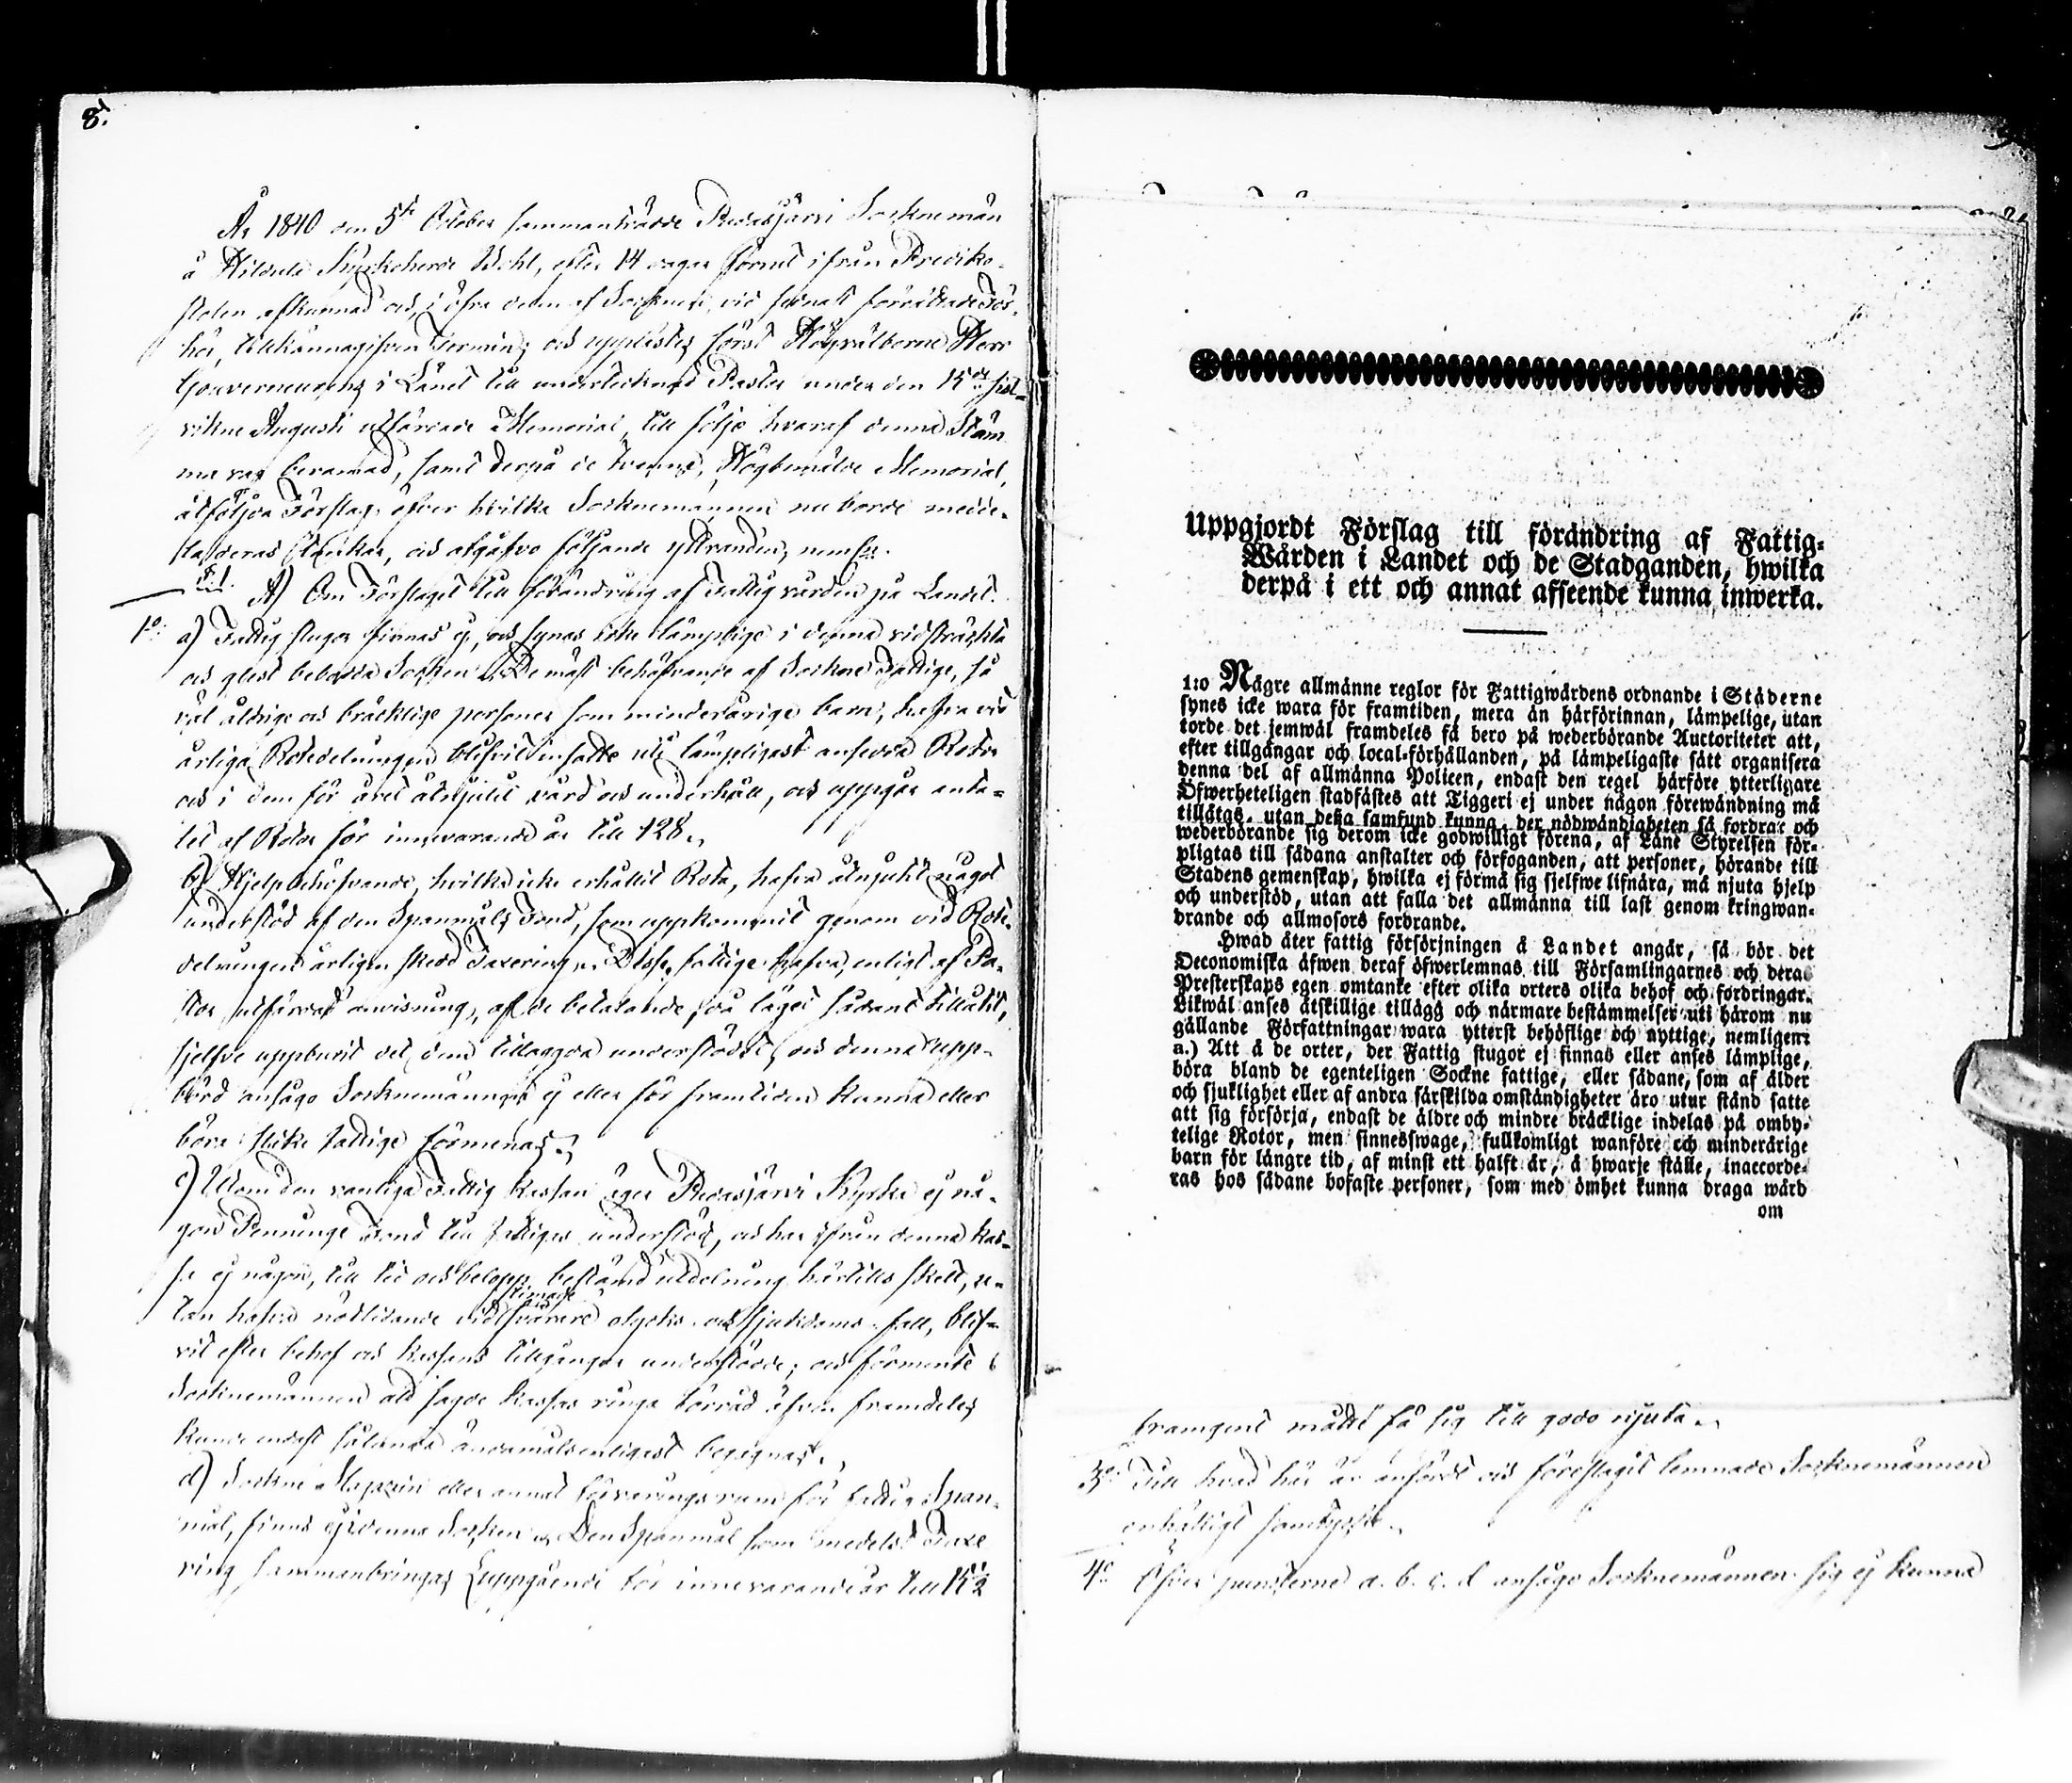 8.
År 1840 den 5te October sammanträdde Pudasjärvi Socknemän
å Kyrkoherde Bohl, efter 14 dagar förut ifrån Prediko-
stolen afkunnad och, i öfra delen af Socknen, vid förrättade För-
hör, tillkännagifven Termin; och upplästes först Högvälborne Herr
Gouverneurens i Länet till undertecknad Pastor under den 15de sist-
vikne Augusti utfärdade Memorial, till följe hvaraf denna Stäm-
ma var beramad, samt derpå de tvenne, Högbemälde Memorial,
åtföljda Förslag, öfver hvilka Socknemännen nu borde medde-
la deras tankar, och afgåfvo följande yttranden, neml:n
§.1.
A) Om Förslaget till förändring af Fattigvården på Landet.
1o: a) Fattig stugor finnas ej, och synas icke lämplige i denna vidsträckta
och glest bebodda Socken. De mäst behöfvande af Sockne Fattige, så
väl åldrige och bräcklige personer som minderårige barn, hafva vid
årliga Rotedelningen blifvit insatte uti lämpligast ansedda Rotor
och i dem för året åtnjutit vård och underhåll, och uppgår anta-
let af Rotor för innevarande år till 128.
b) Hjelpbehöfvande, hvilka icke erhållit Rota, hafva åtnjutit något
understöd af den Spanmåls Fond, som uppkommit genom vid Rote-
delningen årligen skedd Taxering. Desse fattige hafva, enligt af Pa-
stor utfärdad anvisning, af de betalande, då läget sådant tillåtit,
sjelfve uppburit det dem tillagda understödet, och denna upp-
börd ansågo Socknemännen ej eller för framtiden kunna eller
böra slike fattige förmenas.
c) Utom den vanliga Fattig Kassan äger Pudasjärvi Kyrka ej nå-
gon Penninge Fond till fattiges understöd, och har ifrån denna Kas-
sa ej någon, till tid och belopp, bestämd utdelning härtills skett, u-
tan hafva nödlidande vid timade svårare olycks- och sjukdoms-fall, blif-
vit efter behof och Kassans tillgångar understödde; och förmente
Socknemännen att sagde Kassas ringa förråd äfven framdeles
kunde endast sålunda ändamålsenligast begagnas.
d) Sockne Magazin eller annat förvaringsrum för fattig Span-
mål, finnes ej i denna Socken. Den Spanmål som medelst Taxe
ring sammanbringas uppgående för innevarande år till 15 1/2
Uppgjordt Förslag till förändring af Fattig-
Wården i Landet och de Stadganden, hwilka
derpå i ett och annat afseende kunna inwerka.
1:o Några allmänne reglor för Fattigwårdens ordnande i Städerne
synes icke wara för framtiden, mera än härförinnan, lämpelige, utan
torde det jemwäl framdeles få bero på wederbörande Auctoriteter att,
efter tillgångar och local-förhållanden, på lämpeligaste sätt organisera
denna del af allmänna Policen, endast den regel härföre ytterligare
Öfwerheteligen stadfästes att Tiggeri ej under någon förewändning må
tillåtas, utan deßa samfund kunna, der nödwändigheten så fordrar och
wederbörande sig derom icke godwilligt förena, af Läne Styrelsen för-
pligtas till sådana anstalter och förfoganden, att personer, hörande till
Stadens gemenskap, hwilka ej förmå sig sjelfwe lifnära, må njuta hjelp
och understöd, utan att falla det allmänna till last genom kringwan-
drande och allmosors fordrande.
Hwad åter fattig försörjningen å Landet angår, så bör det
Oeconomiska äfwen deraf öfwerlemnas till Församlingarnes och deras
Presterskaps egen omtanke efter olika orters olika behof och fordringar.
Likwäl anses åtskillige tillägg och närmare bestämmelser uti härom nu
gällande Författningar wara ytterst behöflige och nyttige, nemligen:
a.) Att å de orter, der Fattig stugor ej finnas eller anses lämplige,
böra bland de egenteligen Sockne fattige, eller sådane, som af ålder
och sjuklighet eller af andra särskilda omständigheter äro utur stånd satte
att sig försörja, endast de äldre och mindre bräcklige indelas på omby-
telige Rotor, men sinnesswage, fullkomligt wanföre och minderårige
barn för längre tid, af minst ett halft år, å hwarje ställe, inaccorde-
ras hos sådane bofaste personer, som med ömhet kunna draga wård
om
framgent måtte få sig till godo njuta.
3o. Till hvad här är anfördt och föreslagit lemnade Socknemännen
enhälligt samtycke.
4o. Öfver puncterne a. b. c. d ansågo Socknemännen sig ej kunna